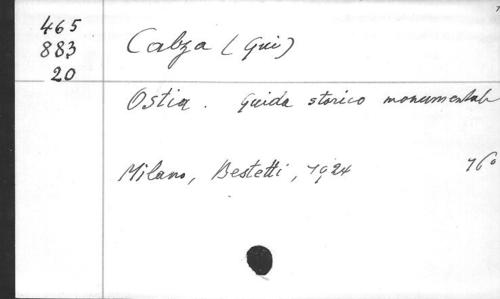 465
883
20
Calza (Gui)
Ostia. Guida storico monumentale
Milano, Bestetti, 1924 16°